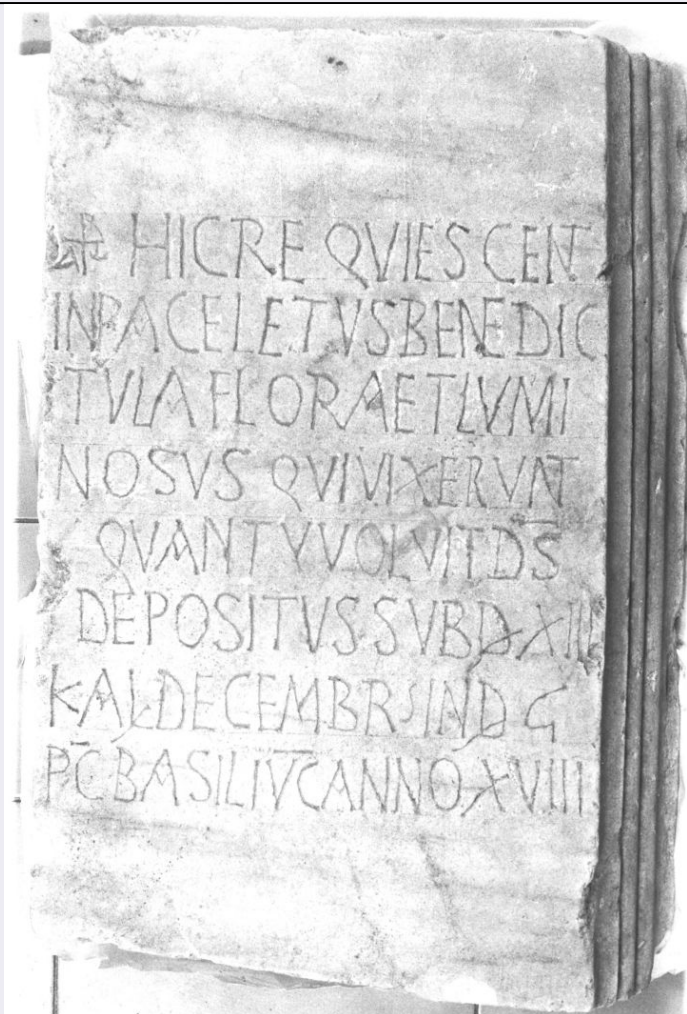 HIC REQUIESCENT
IN PACE LETVS BENEDIC
TVLA FLORA ET LVMI
NOSVS QVI VIXERVNT
QVANTV VOLVIT D̅S̅
DEPOSITVS SVB D XII
KAL DECEMBRS IND Ϛ
P̅C̅ BASILI V̅C̅ ANNO XVIII